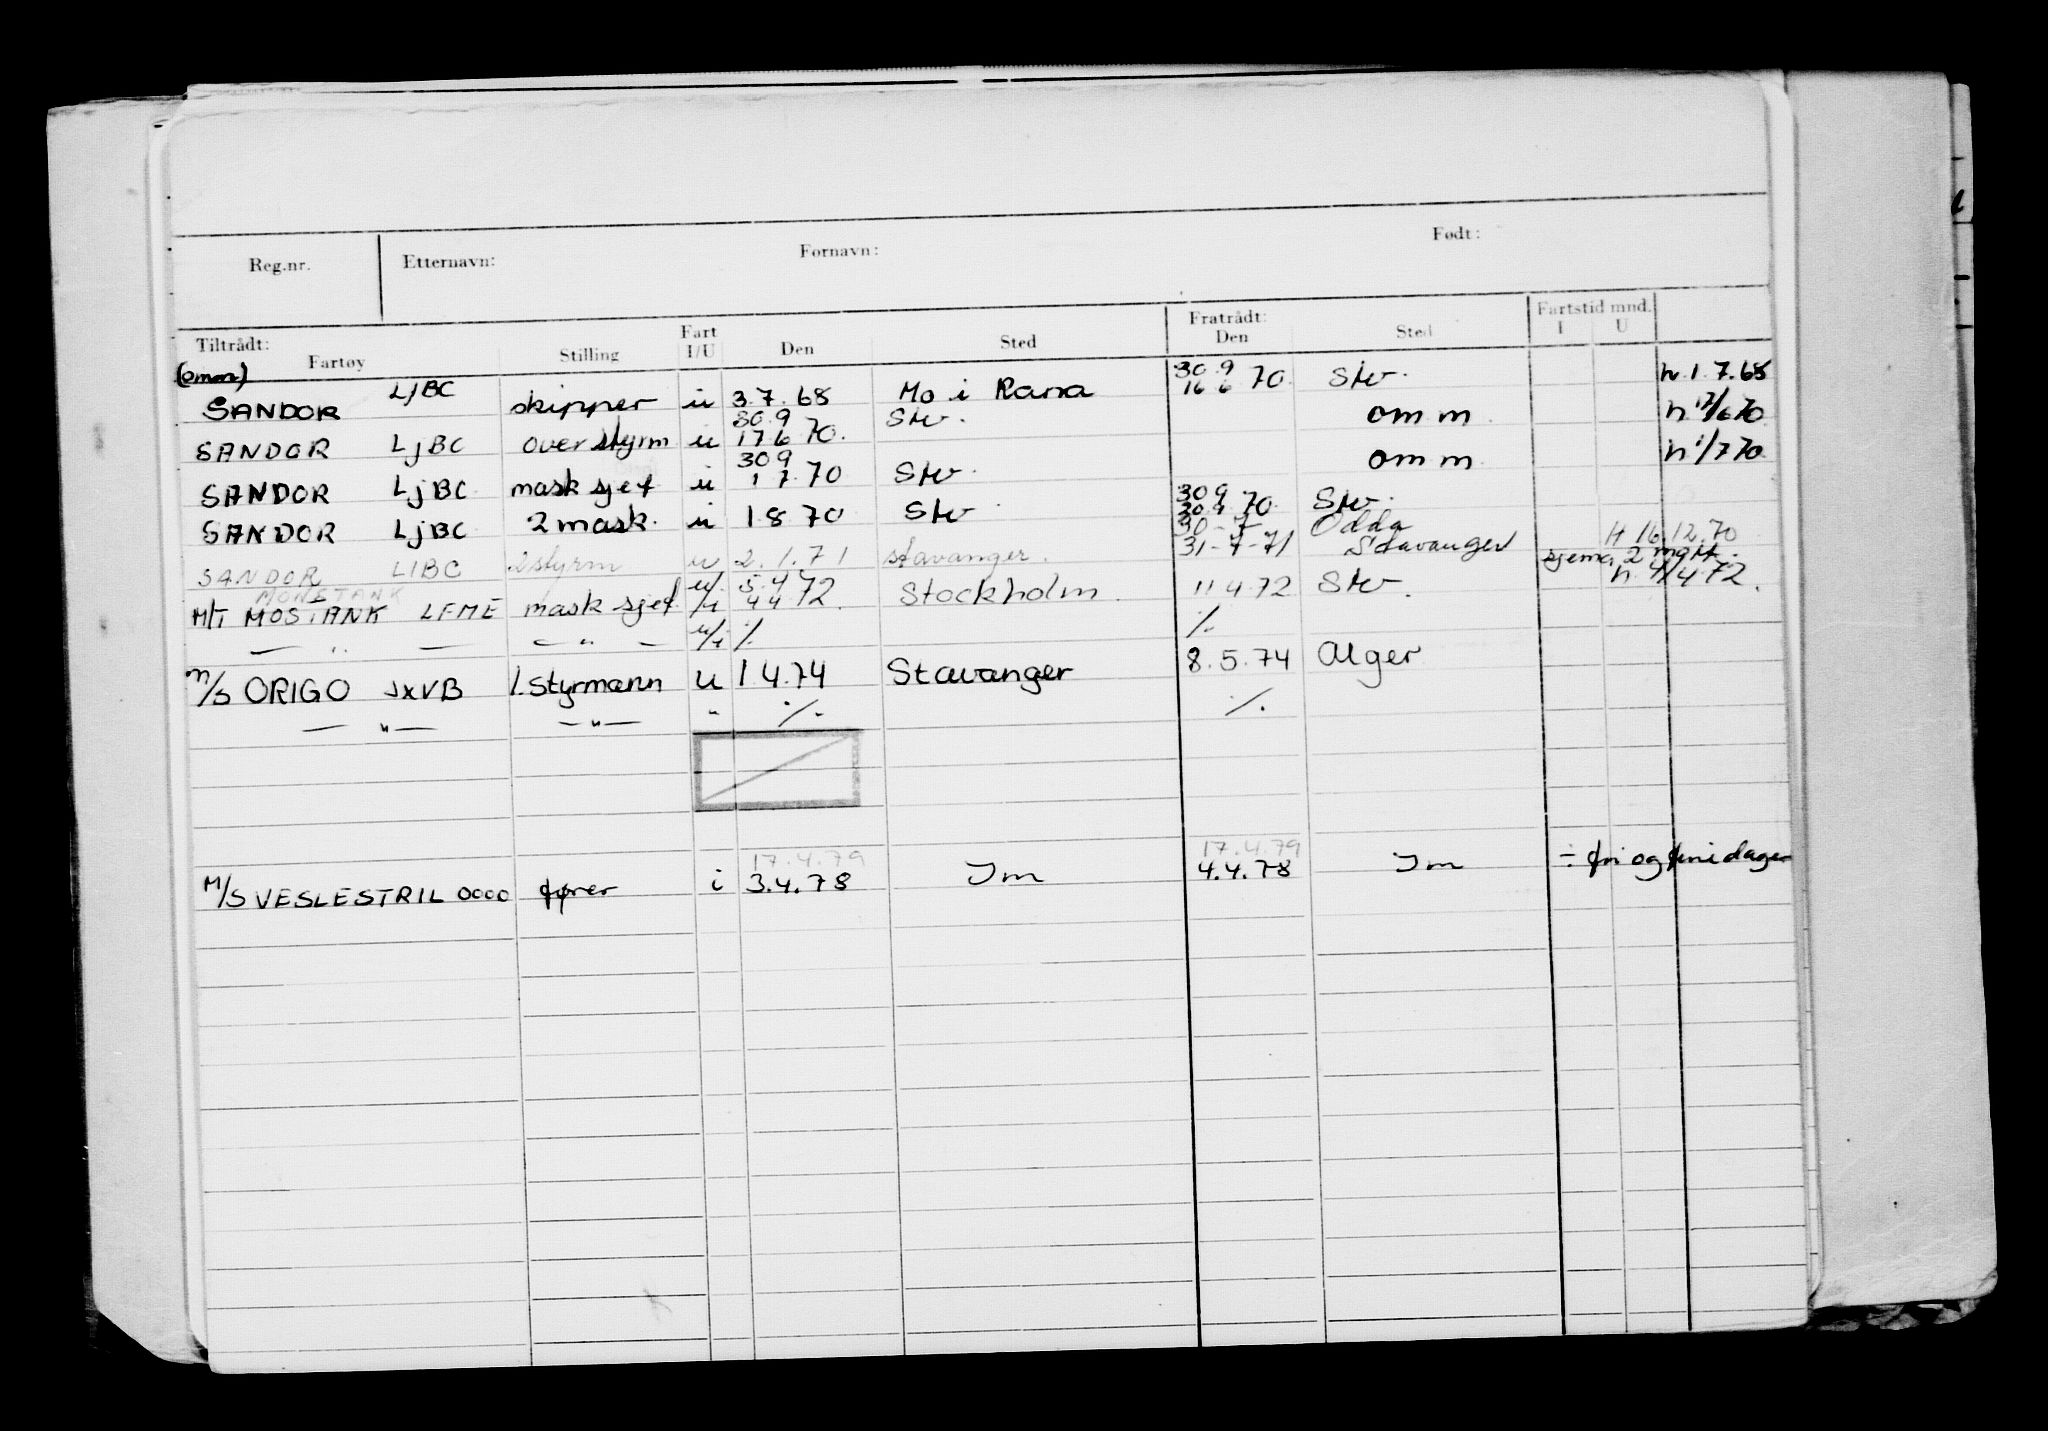 Reg.nr. Etternavn: Fornavn: Født:
Tiltrådt: Fartøy Stilling Fart I/U Den Sted Fratrådt: Den Sted Fartstid mnd. I U
SANDOR LJBC skipper u 3.7.68 Mo i Rana 30.9 16 6 70 Stv. h.1.7.68
SANDOR LJBC overstyrm u 30.9 17 6 70. Stv. om m h 17/6 70
SANDOR LJBC mask sjef u 30 9 1 7 70 Stv om m h 1/7 70
SANDOR LJBC 2 mask. u 1 8 70 Stv 30 9 70 Stv.
SANDOR LJBC 2styrm u 2.1.71 stavanger. 30-7- 31-7-71 Odda Stavanger H 16.12.70
MONSTANK
M/T MOSTANK LFME mask sjef u/i 5.4 4 4 72. Stockholm. 11 4 72 Stv. h. 4/4 72.
— " — — " — u/i ./. ./.
M/S ORIGO JXVB 1.Styrmann u 1 4.74 Stavanger 8.5.74 Alger
— " — — " — " ./. ./.
17.4.79 17.4.79
M/S VESLESTRIL 0000 fører i 3.4.78 Im 4.4.78 Im ÷ fri og feriedager